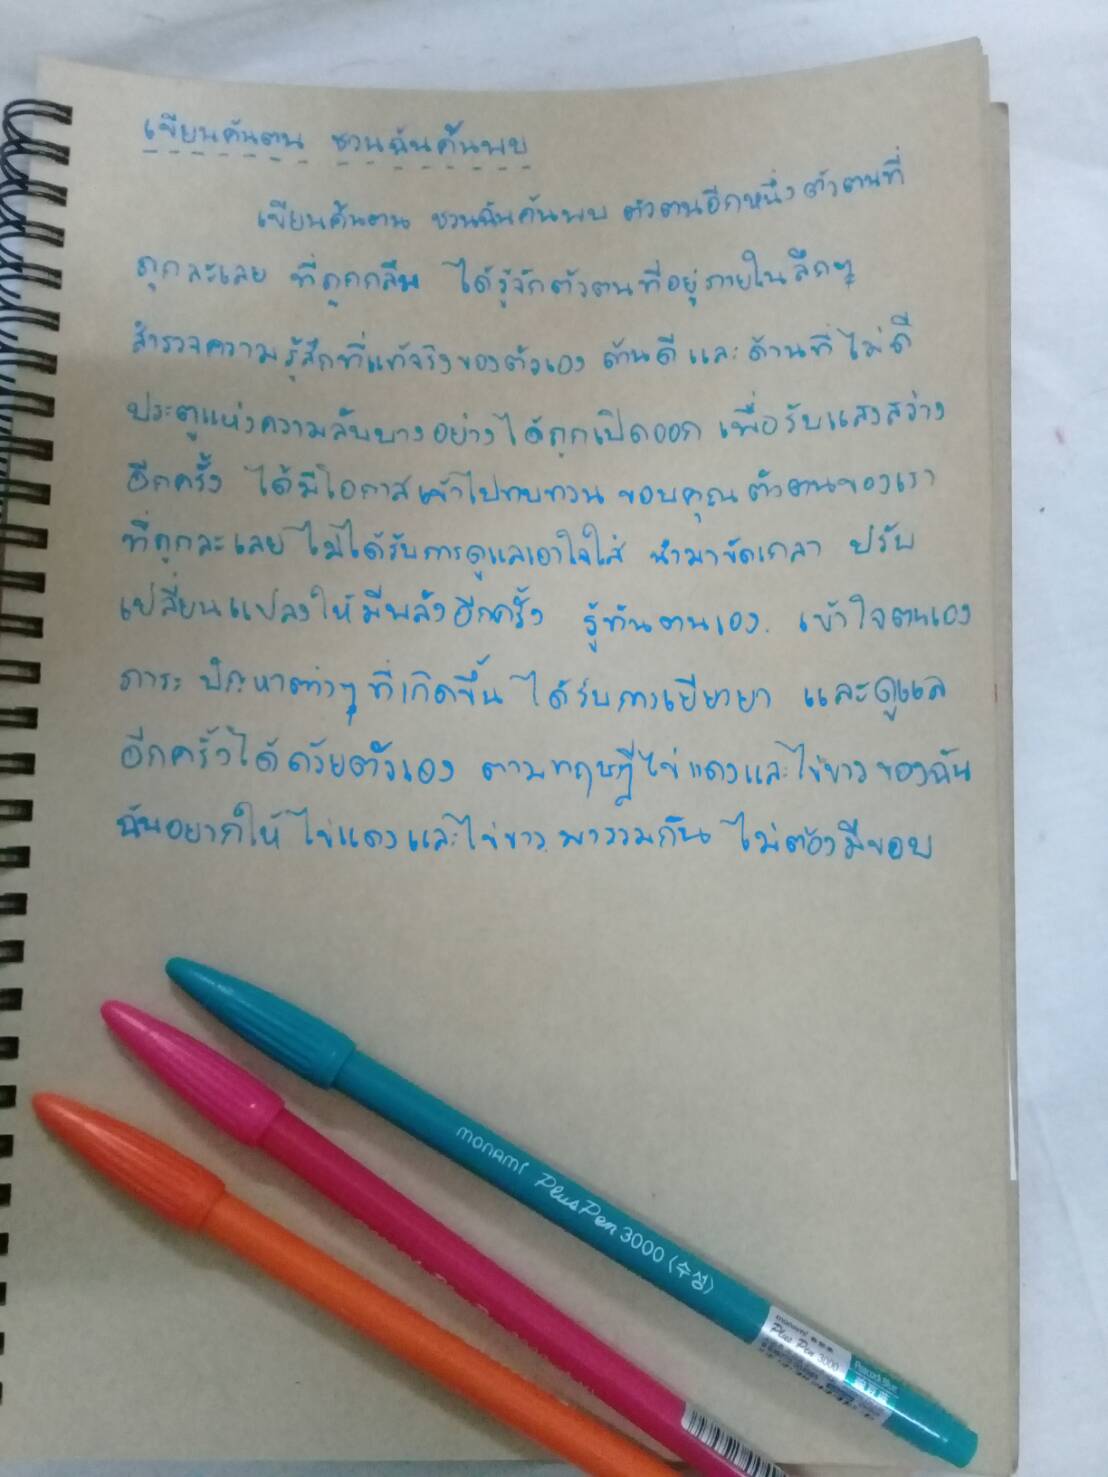 เขียนค้นตน ชวนฉันค้นพบ
เขียนค้นตน ชวนฉันค้นพบ ตัวตนอีกหนึ่งตัวตนที่
ถูกละเลย ที่ถูกกลืน ได้รู้จักตัวตนที่อยู่ภายในลึกๆ
สำรวจความรู้สึกที่แท้จริงของตัวเอง ด้านดีและด้านที่ไม่ดี
ประตูแห่งความลับบางอย่างได้ถูกเปิดออก เพื่อรับแสงสว่าง
อีกครั้ง ได้มีโอกาสเข้าไปทบทวน ขอบคุณตัวตนของเรา
ที่ถูกละเลย ไม่ได้รับการดูแลเอาใจใส่ นำมาขัดเกลา ปรับ
เปลี่ยนแปลงให้มีพลังอีกครั้ง รู้ทันตนเอง เข้าใจตนเอง
ภาระ ปัญหาต่างๆ ที่เกิดขึ้น ได้รับการเยียวยา และดูแล
อีกครั้งได้ด้วยตัวเอง ตามทฤษฎีไข่แดงและไข่ขาวของฉัน
ฉันอยากให้ไข่แดงและไข่ขาวมารวมกัน ไม่ต้องมีขอบ
monami Plus Pen 3000 (수성)
monami
Plus Pen 3000
Peacock Blue